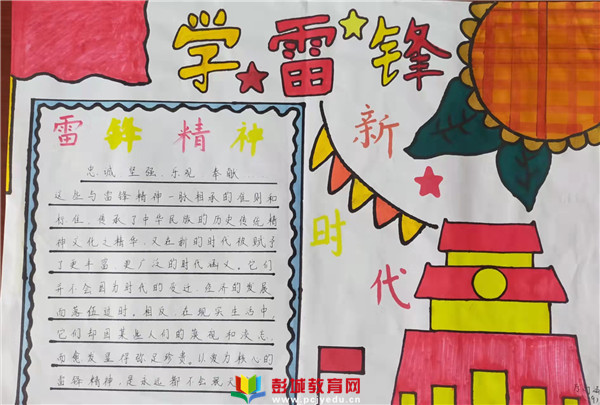 学雷锋
雷锋精神
新时代
忠诚 坚强、乐观 奉献
这些与雷锋精神一脉相承的准则和
行征、传承了中华民族的历史传统精
神文化之精华，又在新的时代被赋予
了更丰富 更广泛的时代涵义。它们
并不会因为时代的变迁、经济的发展
而落伍过时。相反，在现实生活中，
它们却因某些人们的漠视和淡忘，
而愈发显得弥足珍贵。以爱为核心的
雷锋精神，是永远都不会熄火
彭城教育网
www.pcjyedu.cn